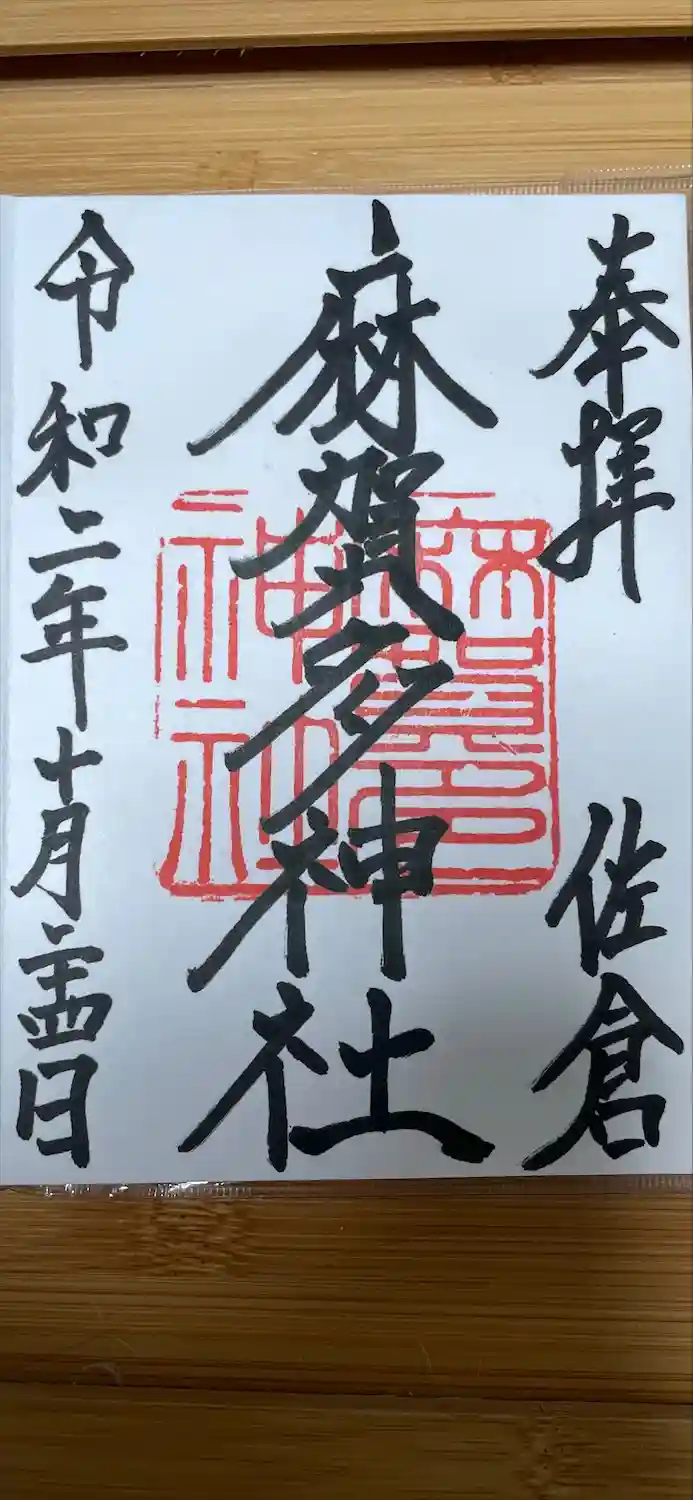 奉拝 佐倉
麻賀多神社
麻賀多
神社
令和二年十月二十四日